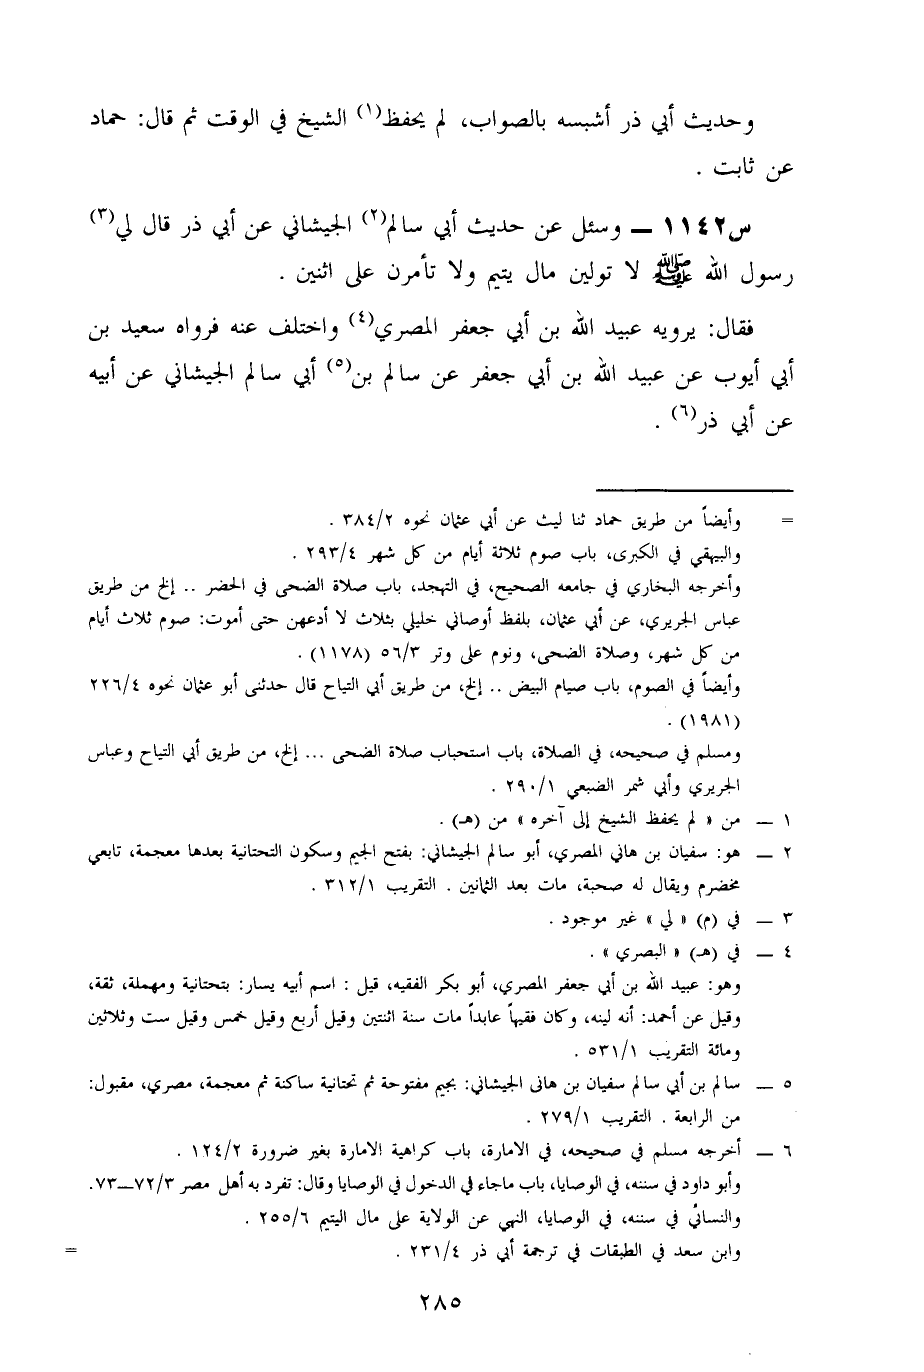 وحديث أبي ذر أشبسه بالصواب، لم يحفظ(١) الشيخ في الوقت ثم قال: حماد
عن ثابت .
س١١٤٢ ــ وسئل عن حديث أبي سالم(٢) الجيشاني عن أبي ذر قال لي(٣)
رسول الله ﷺ لا تولين مال يتيم ولا تأمرن على اثنين .
فقال: يرويه عبيد الله بن أبي جعفر المصري(٤) واختلف عنه فرواه سعيد بن
أبي أيوب عن عبيد الله بن أبي جعفر عن سالم بن(٥) أبي سالم الجيشاني عن أبيه
عن أبي ذر(٦) .
= وأيضاً من طريق حماد ثنا ليث عن أبي عثمان نحوه ٣٨٤/٢ .
والبيهقي في الكبرى، باب صوم ثلاثة أيام من كل شهر ٢٩٣/٤ .
وأخرجه البخاري في جامعه الصحيح، في التهجد، باب صلاة الضحى في الحضر .. إلخ من طريق
عباس الجريري، عن أبي عثمان، بلفظ أوصاني خليلي بثلاث لا أدعهن حتى أموت: صوم ثلاث أيام
من كل شهر، وصلاة الضحى، ونوم على وتر ٥٦/٣ (١١٧٨) .
وأيضاً في الصوم، باب صيام البيض .. إلخ، من طريق أبي التياح قال حدثنى أبو عثمان نحوه ٢٢٦/٤
(١٩٨١) .
ومسلم في صحيحه، في الصلاة، باب استحباب صلاة الضحى ... إلخ، من طريق أبي التياح وعباس
الجريري وأبي شمر الضبعي ٢٩٠/١ .
١ ــ من « لم يحفظ الشيخ إلى آخره » من (هـ) .
٢ ــ هو: سفيان بن هاني المصري، أبو سالم الجيشاني: بفتح الجيم وسكون التحتانية بعدها معجمة، تابعي
مخضرم ويقال له صحبة، مات بعد الثمانين . التقريب ٣١٢/١ .
٣ ــ في (م) « لي » غير موجود .
٤ ــ في (هـ) « البصري » .
وهو: عبيد الله بن أبي جعفر المصري، أبو بكر الفقيه، قيل : اسم أبيه يسار: بتحتانية ومهملة، ثقة،
وقيل عن أحمد: أنه لينه، وكان فقيهاً عابداً مات سنة اثنتين وقيل أربع وقيل خمس وقيل ست وثلاثين
ومائة التقريب ٥٣١/١ .
٥ ــ سالم بن أبي سالم سفيان بن هانى الجيشاني: بجيم مفتوحة ثم تحتانية ساكنة ثم معجمة، مصري، مقبول:
من الرابعة . التقريب ٢٧٩/١ .
٦ ــ أخرجه مسلم في صحيحه، في الامارة، باب كراهية الامارة بغير ضرورة ١٢٤/٢ .
وأبو داود في سننه، في الوصايا، باب ماجاء في الدخول في الوصايا وقال: تفرد به أهل مصر ٧٢/٣ــ٧٣.
والنسائي في سننه، في الوصايا، النهي عن الولاية على مال اليتيم ٢٥٥/٦ .
وابن سعد في الطبقات في ترجمة أبي ذر ٢٣١/٤ . =
٢٨٥